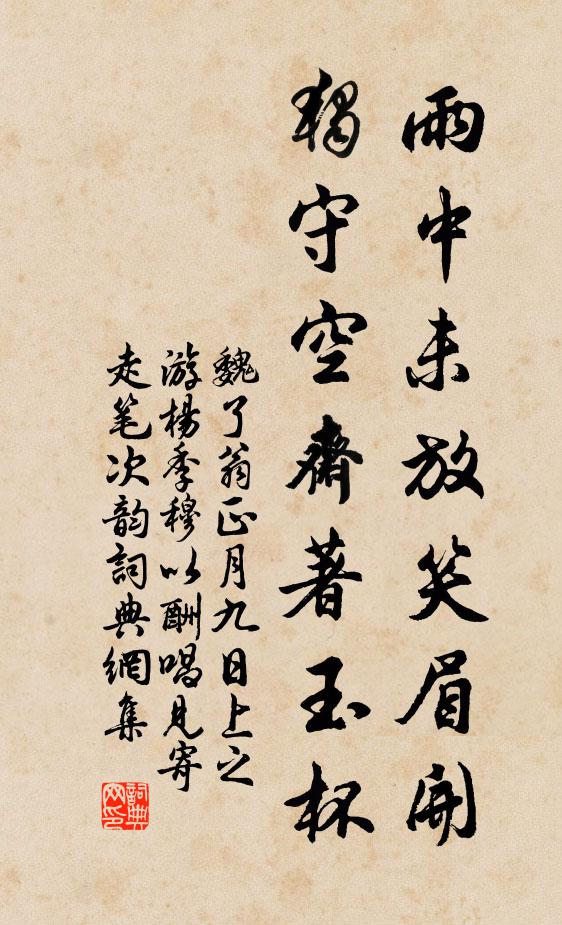 雨中未放笑眉開
獨守空齋著玉杯
魏了翁正月九日上之
游楊季穆以酬唱見寄
走笔次韵詞典網集
詞典网印